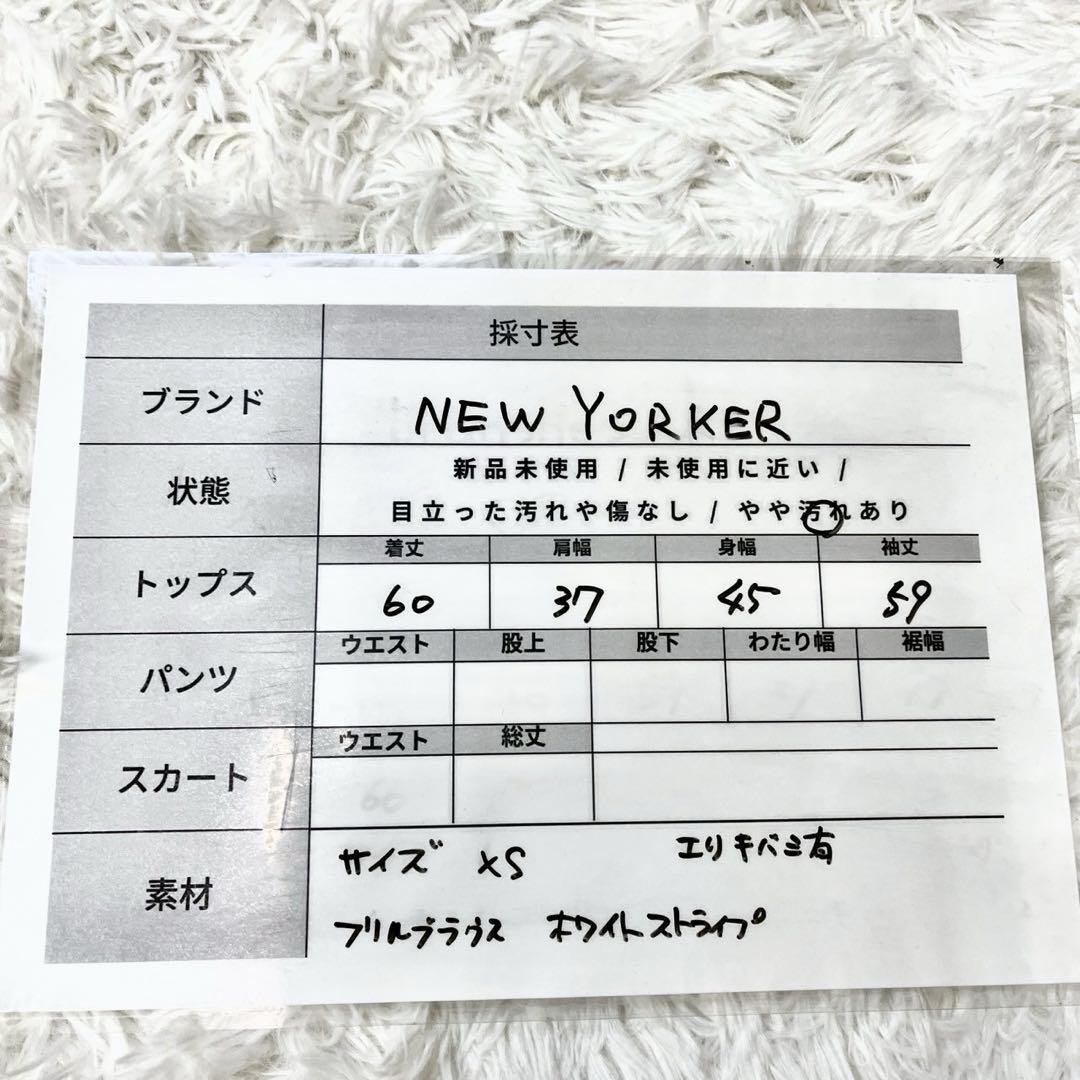 採寸表
ブランド NEW YORKER
状態 新品未使用 / 未使用に近い /
目立った汚れや傷なし / やや汚れあり
着丈 肩幅 身幅 袖丈
トップス 60 37 45 59
ウエスト 股上 股下 わたり幅 裾幅
パンツ
ウエスト 総丈
スカート
素材 サイズ XS エリキバミ有
フリルブラウス ホワイトストライプ